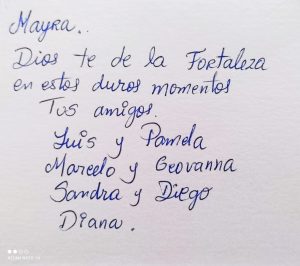 Mayra..
Dios te de la Fortaleza
en estos duros momentos
Tus amigos.
Luis y Pamela
Marcelo y Geovanna
Sandra y Diego
Diana.